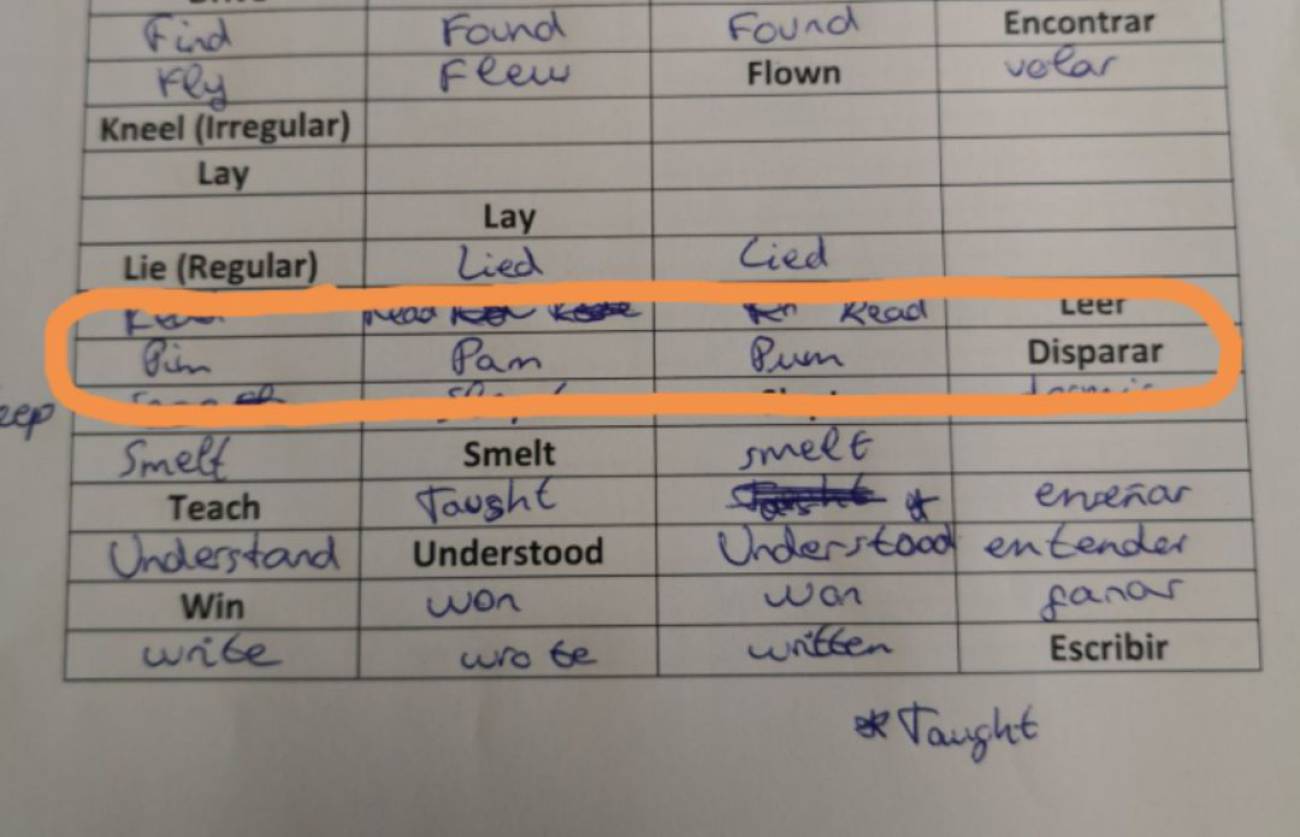 Find Found Found Encontrar
Fly Flew Flown volar
Kneel (Irregular)
Lay
Lay
Lie (Regular) Lied Lied
Read Read Leer
Pim Pam Pum Disparar
Smelt Smelt smelt
Teach Taught * enseñar
Understand Understood Understood entender
Win won won ganar
write wrote written Escribir
* Taught